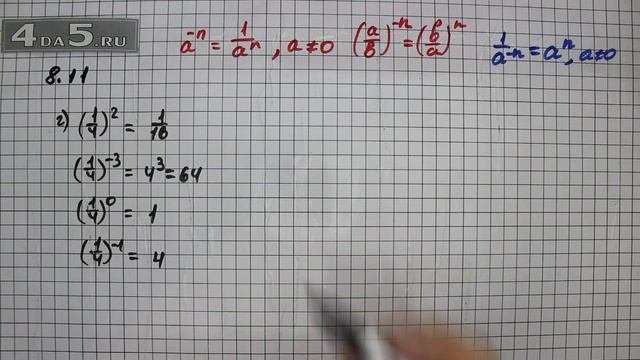 4DA5.RU
a⁻ⁿ = 1/aⁿ , a≠0 (a/b)⁻ⁿ = (b/a)ⁿ
1/a⁻ⁿ = aⁿ, a≠0
8.11
г) (1/4)² = 1/16
(1/4)⁻³ = 4³ = 64
(1/4)⁰ = 1
(1/4)⁻¹ = 4